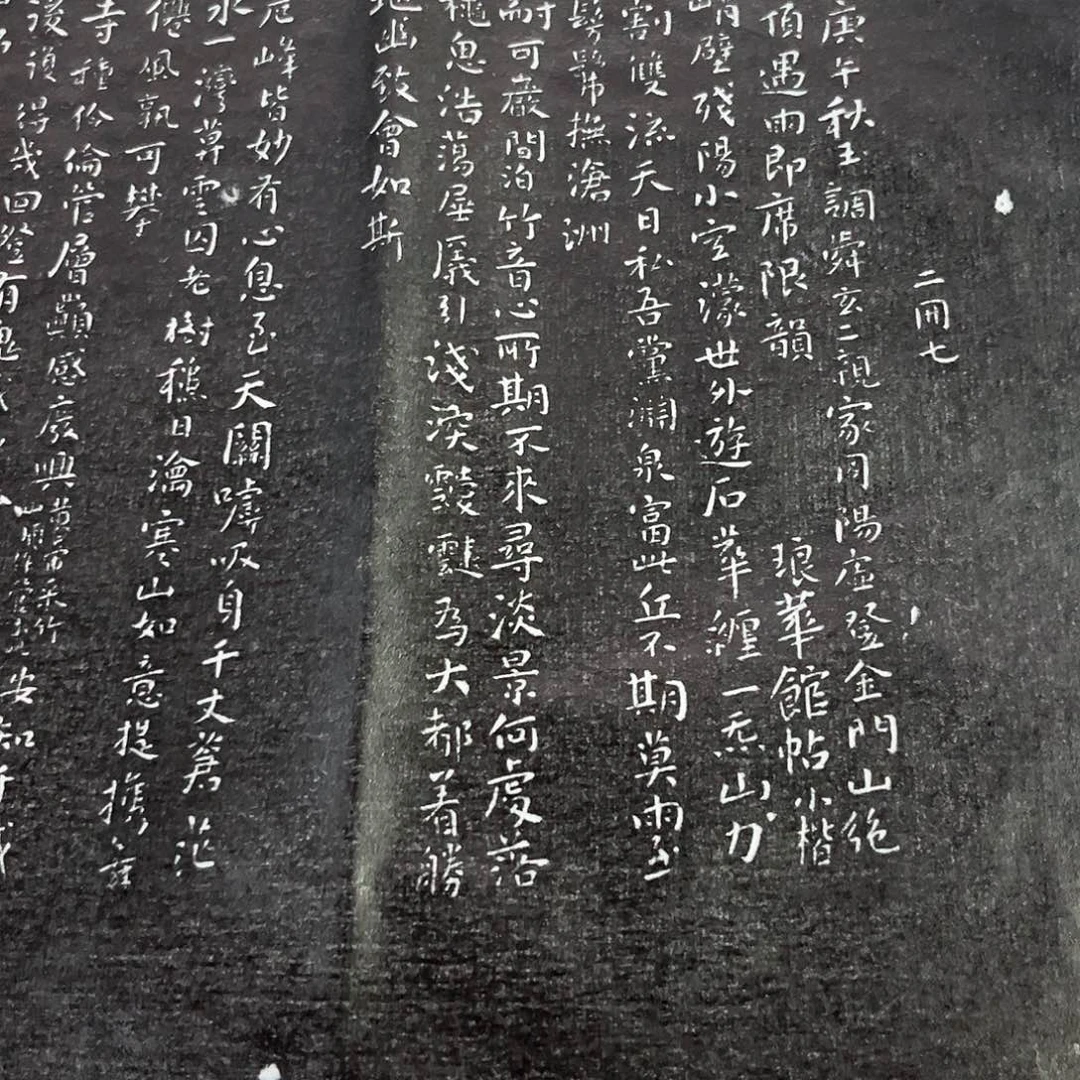 二冊七
庚午秋王調舜玄二親家同陽虛登金門山絕
頂遇雨即席限韻
琅華館帖小楷
峭壁殘陽小空濛世外遊石華纏一炁山力
割雙流天日私吾黨淵泉富此丘不期莫雨至
髣髴撫滄洲
耐可巖間泊竹音心所期不來尋淡景何處落
穐思浩蕩屋引淺深靉靆為大都着勝
地幽致會如斯
峰皆妙有心息至天關嘘吸身千丈蒼茫
水一灣草雲囚老樹穐日瀹寒山如意提攜
僊佩孰可攀
寺種伶倫管層巔感廢興黃帝采竹
後須得幾回登有安知千